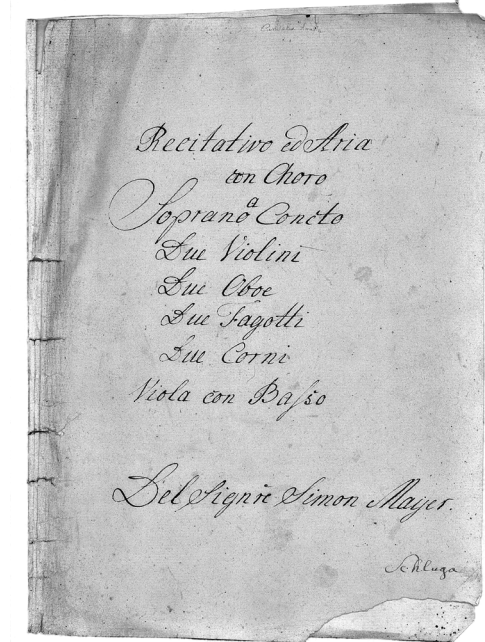 Recitativo ed Aria
con Choro
a
Soprano Concto
Due Violini
Due Oboe
Due Fagotti
Due Corni
Viola con Baſso
Del Signre Simon Mayer.
Schluga